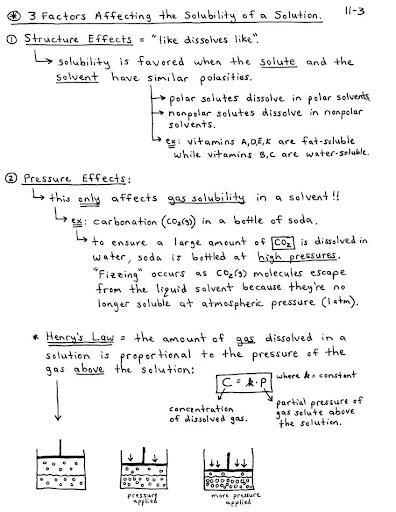 ⊛ 3 Factors Affecting the Solubility of a Solution. 11-3
① Structure Effects = "like dissolves like".
↳ solubility is favored when the solute and the
solvent have similar polarities.
→ polar solutes dissolve in polar solvents.
→ nonpolar solutes dissolve in nonpolar
solvents.
↳ ex: vitamins A,D,E,K are fat-soluble
while vitamins B,C are water-soluble.
② Pressure Effects:
↳ this only affects gas solubility in a solvent!!
↳ ex: carbonation (CO₂(g)) in a bottle of soda.
↳ to ensure a large amount of CO₂ is dissolved in
water, soda is bottled at high pressures.
"Fizzing" occurs as CO₂(g) molecules escape
from the liquid solvent because they're no
longer soluble at atmospheric pressure (1 atm).
* Henry's Law = the amount of gas dissolved in a
solution is proportional to the pressure of the
gas above the solution:
C = k·P where k = constant
concentration
of dissolved gas.
partial pressure of
gas solute above
the solution.
pressure
applied
more pressure
applied